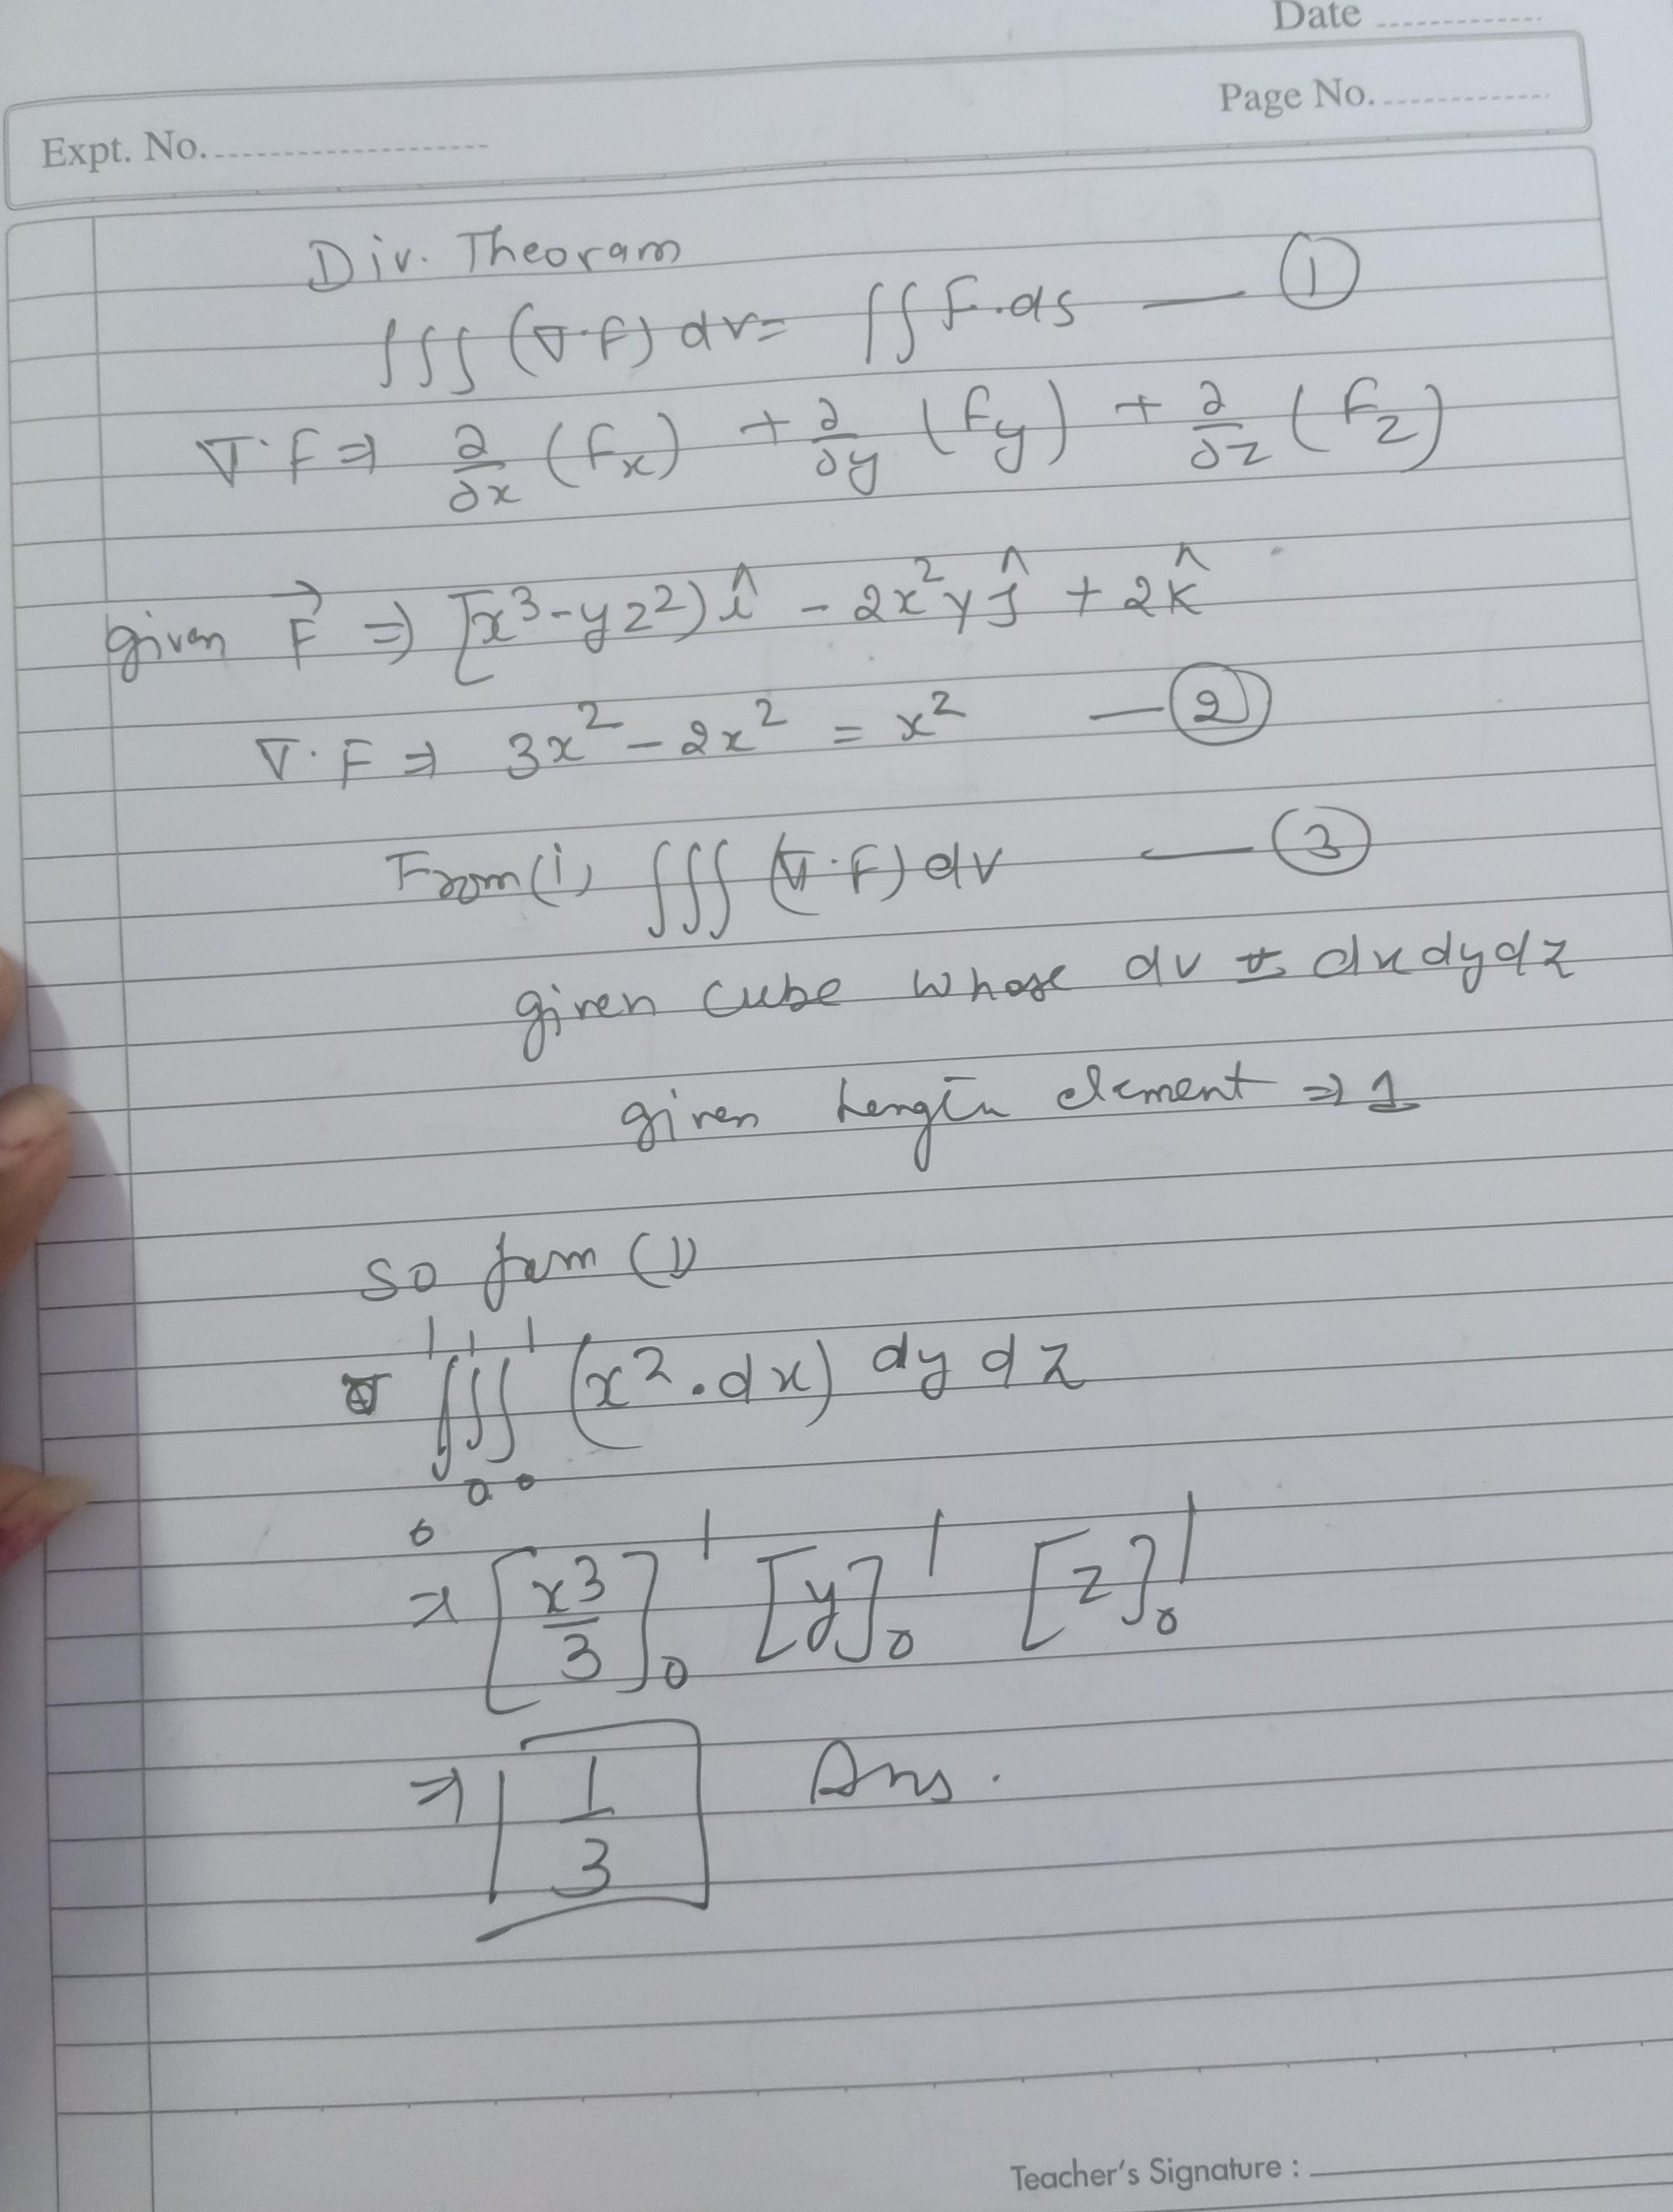 Date ..............
Page No. ..................
Expt. No. ........................
Div. Theoram
∫∫∫ (∇·F) dv = ∫∫ F.ds — ①
∇·F ⇒ ∂/∂x (Fx) + ∂/∂y (Fy) + ∂/∂z (Fz)
given F⃗ ⇒ [x³-yz²) î - 2x²y ĵ + 2k̂
∇·F ⇒ 3x² - 2x² = x² — ②
From (i) ∫∫∫ (∇·F) dv — ③
given cube whose dv = dx dy dz
given Length element ⇒ 1
so from (1)
∫₀¹∫₀¹∫₀¹ (x².dx) dy dz
⇒ [x³/3]₀¹ [y]₀¹ [z]₀¹
⇒ 1/3 Ans.
Teacher's Signature :